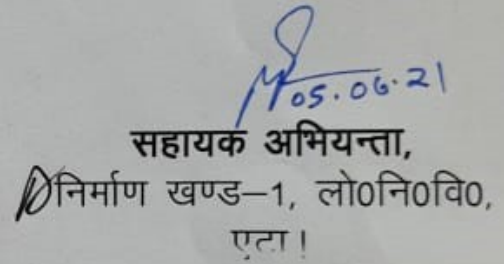 05.06.21
सहायक अभियन्ता,
निर्माण खण्ड–1, लो0नि0वि0,
एटा।